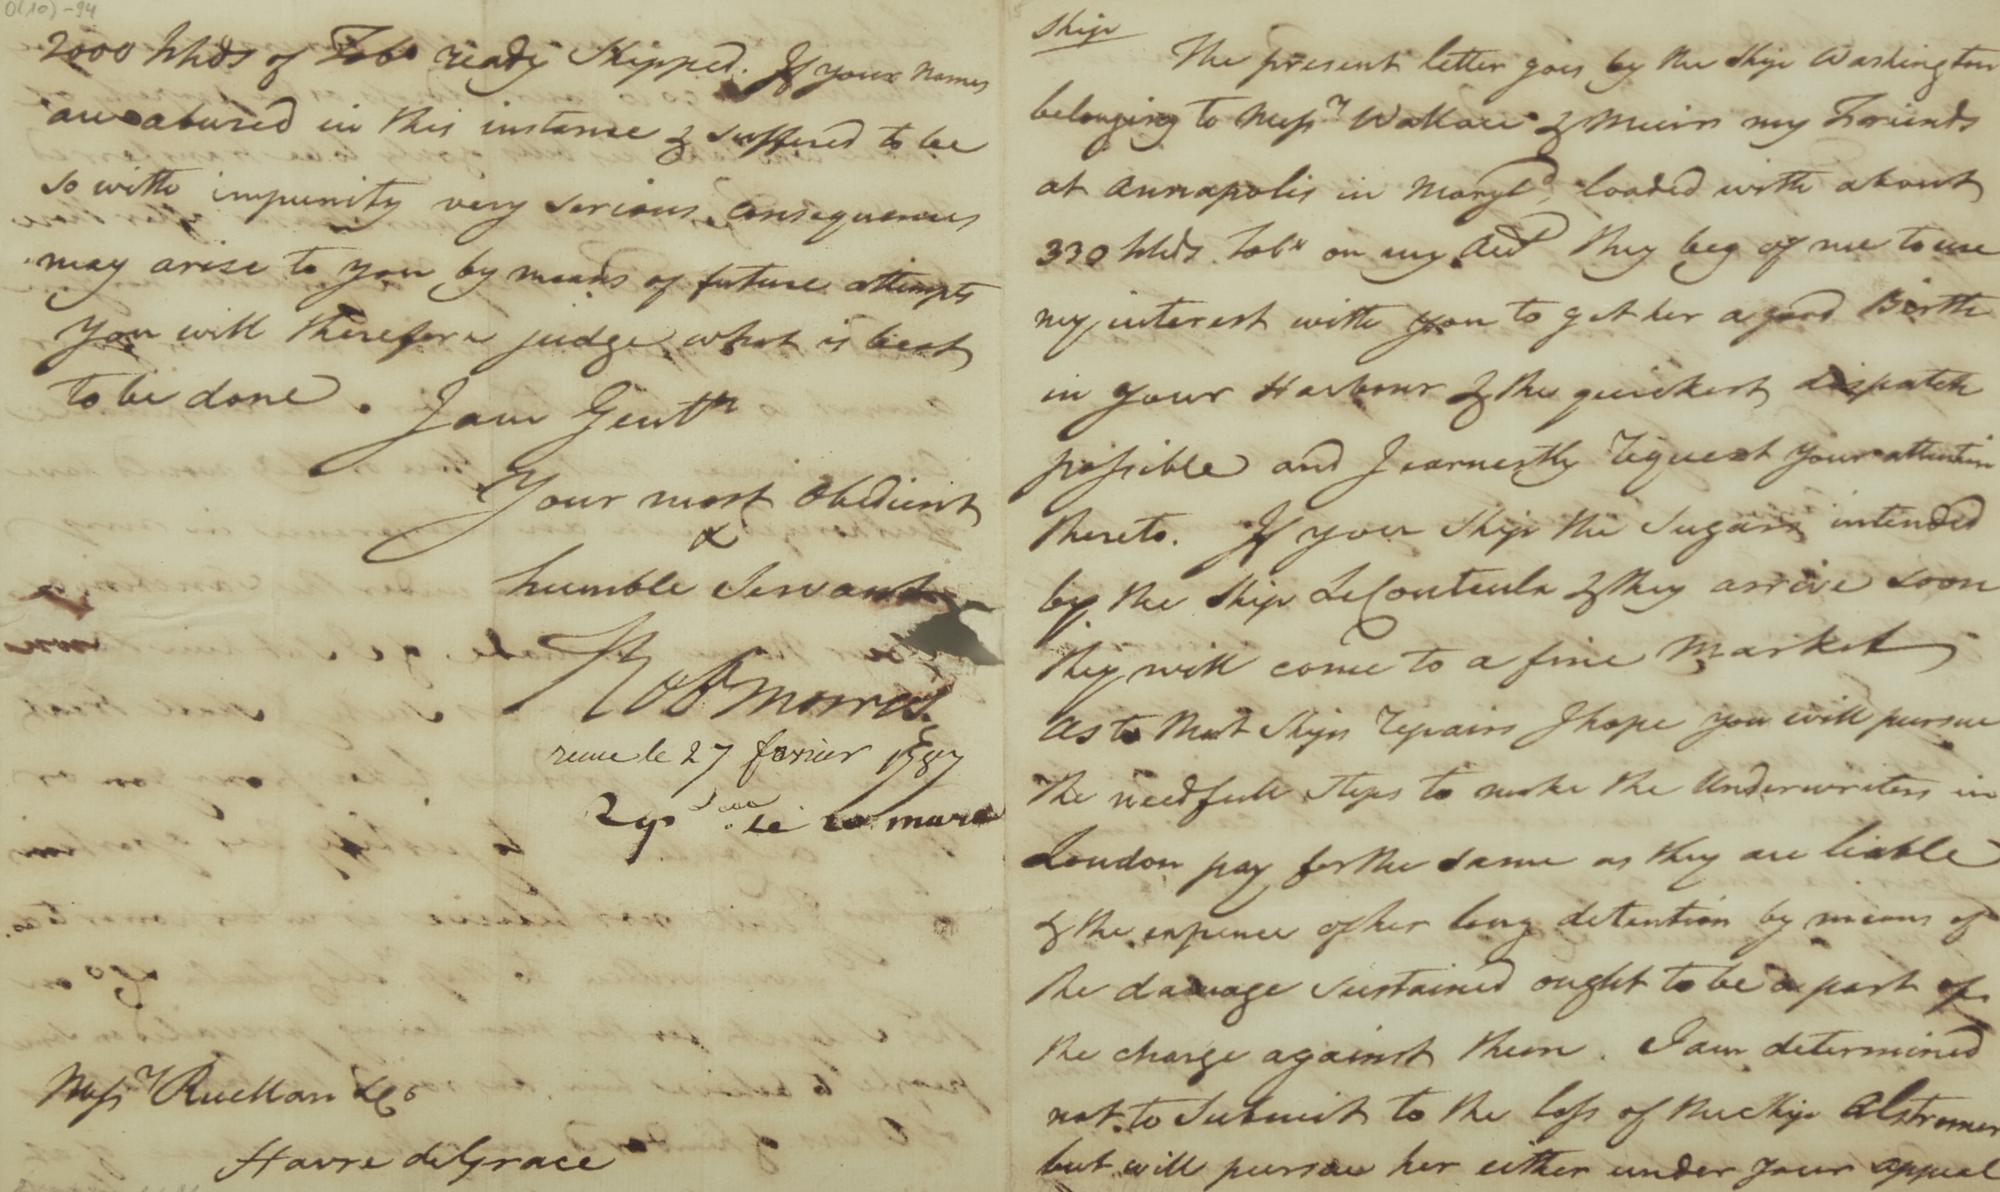 2000 hhds of Tobo ready Shipped. If your names
are abused in this instance & suffered to be
so with impunity very serious consequences
may arise to you by means of future attempts
You will therefore judge what is best
to be done. I am Gentn
Your most Obedient
&
humble Servant
Robt Morris
reçue le 27 fevrier 1787
Le 20 mars
Messrs Ruellan & Co
Havre de Grace
O(10)-94
Ship
The present letter goes by the Ship Washington
belonging to Messrs Wallace & Muir my Friends
at Annapolis in Maryld, loaded with about
330 hhds Tobo on my Acct They beg of me to use
my interest with you to get her a good Birth
in your Harbour & the quickest dispatch
possible and I earnestly request your attention
thereto. If you Ship the Sugars intended
by the Ship LeCouteulx & they arrive soon
they will come to a fine Market
As to that Ships repairs I hope you will pursue
the needfull Steps to make the Underwriters in
London pay for the same as they are liable
& the expence of her long detention by means of
the damage sustained ought to be a part of
the charge against them. I am determined
not to Submit to the loss of the Ship Alstromer
but will pursue her either under your appeal